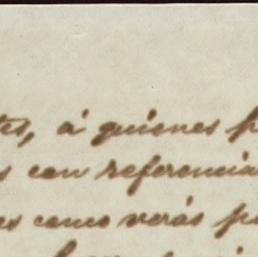 tes, á quienes p
s con referencia
es como verás p